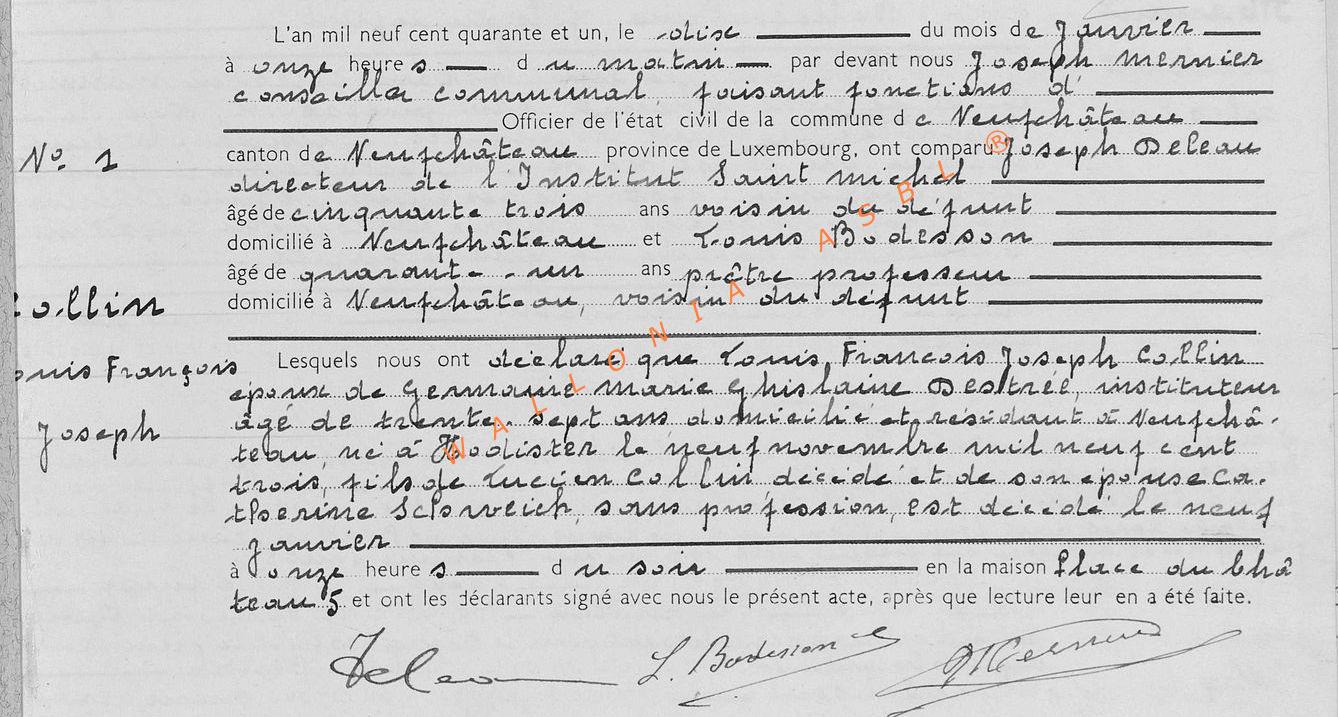 L'an mil neuf cent quarante et un, le dix du mois de Janvier
à onze heures du matin par devant nous Joseph Mernier
conseiller communal, faisant fonctions d'
Officier de l'état civil de la commune de Neufchâteau
N° 1
canton de Neufchâteau province de Luxembourg, ont comparu Joseph Deleau
directeur de l'Institut Saint Michel
âgé de cinquante trois ans voisin du défunt
domicilié à Neufchâteau et Louis Bodesson
âgé de quarante-un ans prêtre professeur
domicilié à Neufchâteau, voisin du défunt
Collin
Louis François
Joseph
Lesquels nous ont déclaré que Louis, François Joseph Collin
époux de Germaine Marie Ghislaine Destrée, instituteur
âgé de trente-sept ans domicilié et résidant à Neufchâ-
teau, né à Hodister le neuf novembre mil neuf cent
trois, fils de Lucien Collin, décédé et de son épouse Ca-
therine Schweich, sans profession, est décédé le neuf
Janvier
à onze heures du soir en la maison Place du Châ
teau 5 et ont les déclarants signé avec nous le présent acte, après que lecture leur en a été faite.
Deleau L. Bodesson JMernier
WALLONIA ASBL ®